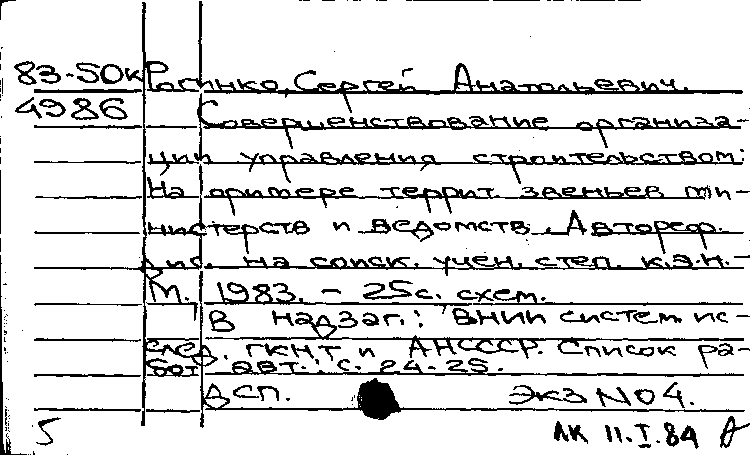 83-50к Рогинко, Сергей Анатольевич.
4986 Совершенствование организа-
ции управления строительством:
На примере террит. звеньев ми-
нистерств и ведомств. Автореф.
дис. на соиск. учен. степ. к.э.н. -
М. 1983. - 25с. схем.
В надзаг.: ВНИИ систем. ис-
след. ГКНТ и АНСССР. Список ра-
бот авт.: с. 24-25.
ДСП. Экз №04.
5 ЛК 11.I.84